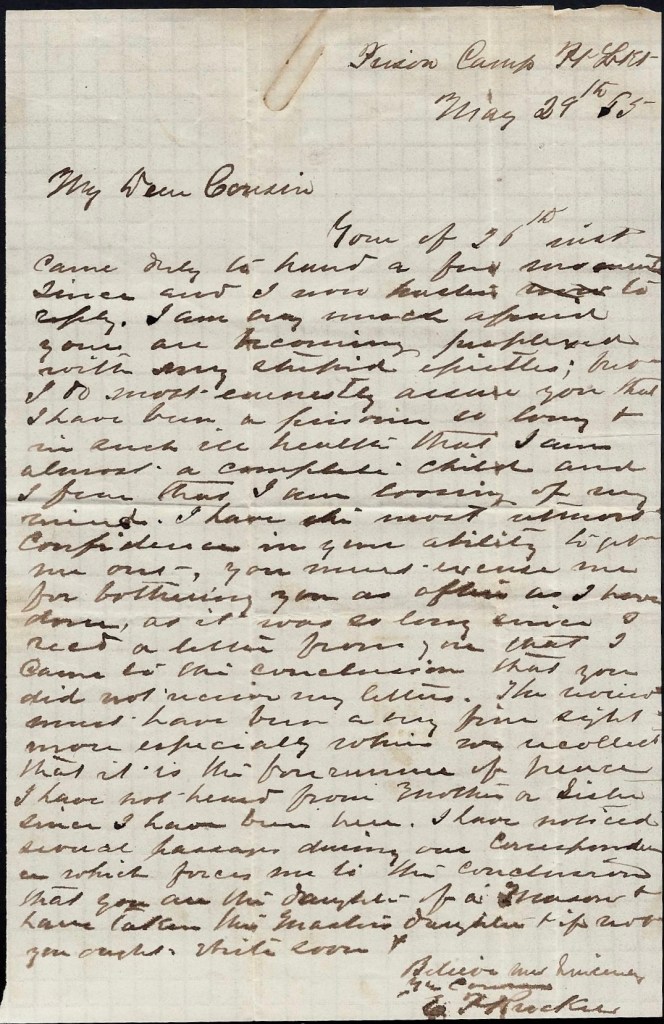 Prison Camp Pt Lkt
May 29th 65
My Dear Cousin
Your of 26th inst
came duly to hand a few moments
since and I now hasten to
reply. I am very much afraid
you are becoming perplexed
with my stupid epistles; but
I do most earnestly assure you that
I have been a prisoner so long &
in such ill health that I am
almost a complete child and
I fear that I am loosing of my
mind. I have the most utmost
confidence in your ability to get
me out, you must excuse me
for bothering you as often as I have
done, as it was so long since I
recd a letter from you that I
came to the conclusion that you
did not receive my letters. The review
must have been a very fine sight
more especially when we recollect
that it is the forerunner of peace
I have not heard from Mother or Sister
since I have been here. I have noticed
several passages during our correspondence
which forces me to the conclusion
that you are the daughter of a Mason &
have taken the Masters daughter & if not
you ought. Write soon &
Believe me Sincerely
Yr Cousin